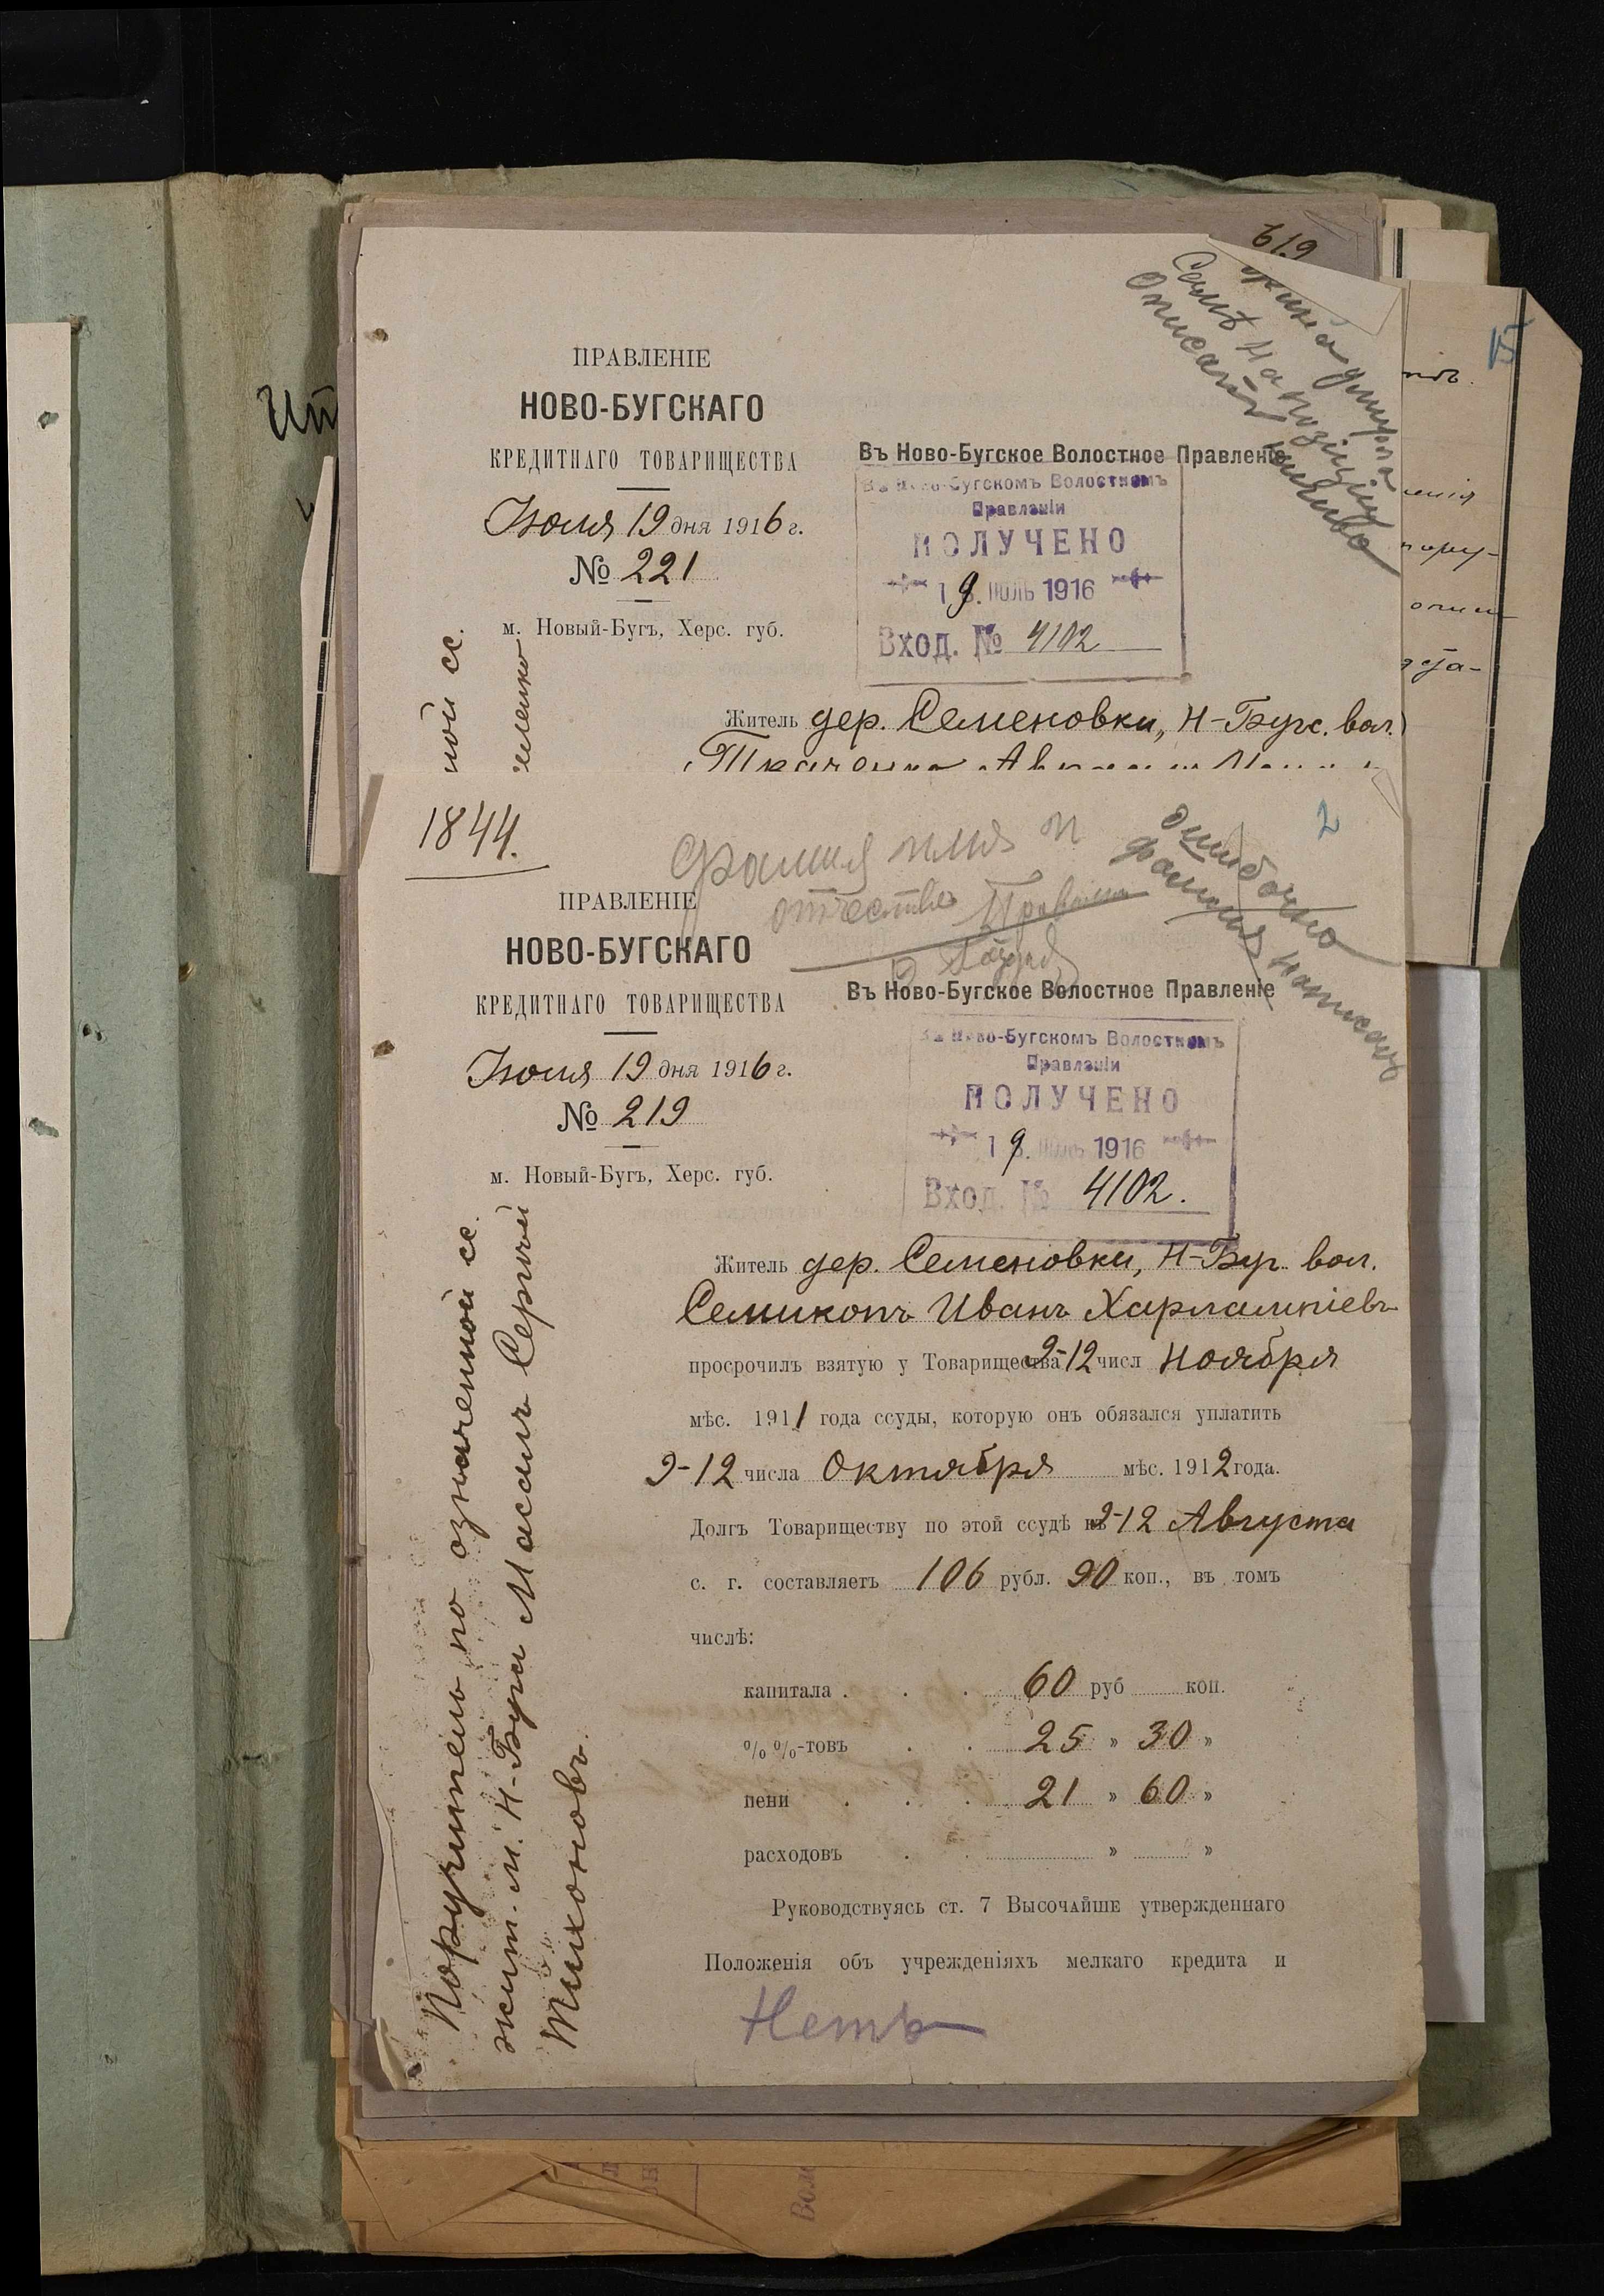 619
жина умерла
Самъ на позиціи
описать нечево
15
ПРАВЛЕНІЕ
НОВО-БУГСКАГО
КРЕДИТНАГО ТОВАРИЩЕСТВА
Іюля 19 дня 1916 г.
№ 221
м. Новый-Бугъ, Херс. губ.
Въ Ново-Бугское Волостное Правленіе
Въ Ново-Бугскомъ Волостномъ
Правленіи
ПОЛУЧЕНО
19. ІЮЛЬ 1916
Вход. № 4102
ной сс.
Житель дер. Семеновки, Н-Бугс. вол.
1844.
2
Фамилія имя и
отчество
ошибочно
фамилия написана
ПРАВЛЕНІЕ
НОВО-БУГСКАГО
КРЕДИТНАГО ТОВАРИЩЕСТВА
Іюля 19 дня 1916 г.
№ 219
м. Новый-Бугъ, Херс. губ.
Въ Ново-Бугское Волостное Правленіе
Въ Ново-Бугскомъ Волостномъ
Правленіи
ПОЛУЧЕНО
19. ІЮЛЬ 1916
Вход. № 4102.
Житель дер. Семеновки, Н-Буг. вол.
Семикопъ Иванъ Харлампіевъ
просрочилъ взятую у Товарищества 2-12 числ Ноября
мѣс. 1911 года ссуды, которую онъ обязался уплатить
2-12 числа Октября мѣс. 1912 года.
Долгъ Товариществу по этой ссудѣ къ 2-12 Августа
с. г. составляетъ 106 рубл. 90 коп., въ томъ
числѣ:
капитала . . . 60 руб коп.
%%-товъ . . 25 » 30 »
пени . . . 21 » 60 »
расходовъ . . » »
Руководствуясь ст. 7 ВЫСОЧАЙШЕ утвержденнаго
Положенія объ учрежденіяхъ мелкаго кредита и
Нетъ
Поручитель по означенной сс.
жит. м. Н-Буга Масалъ Сергѣй
Тихоновъ.